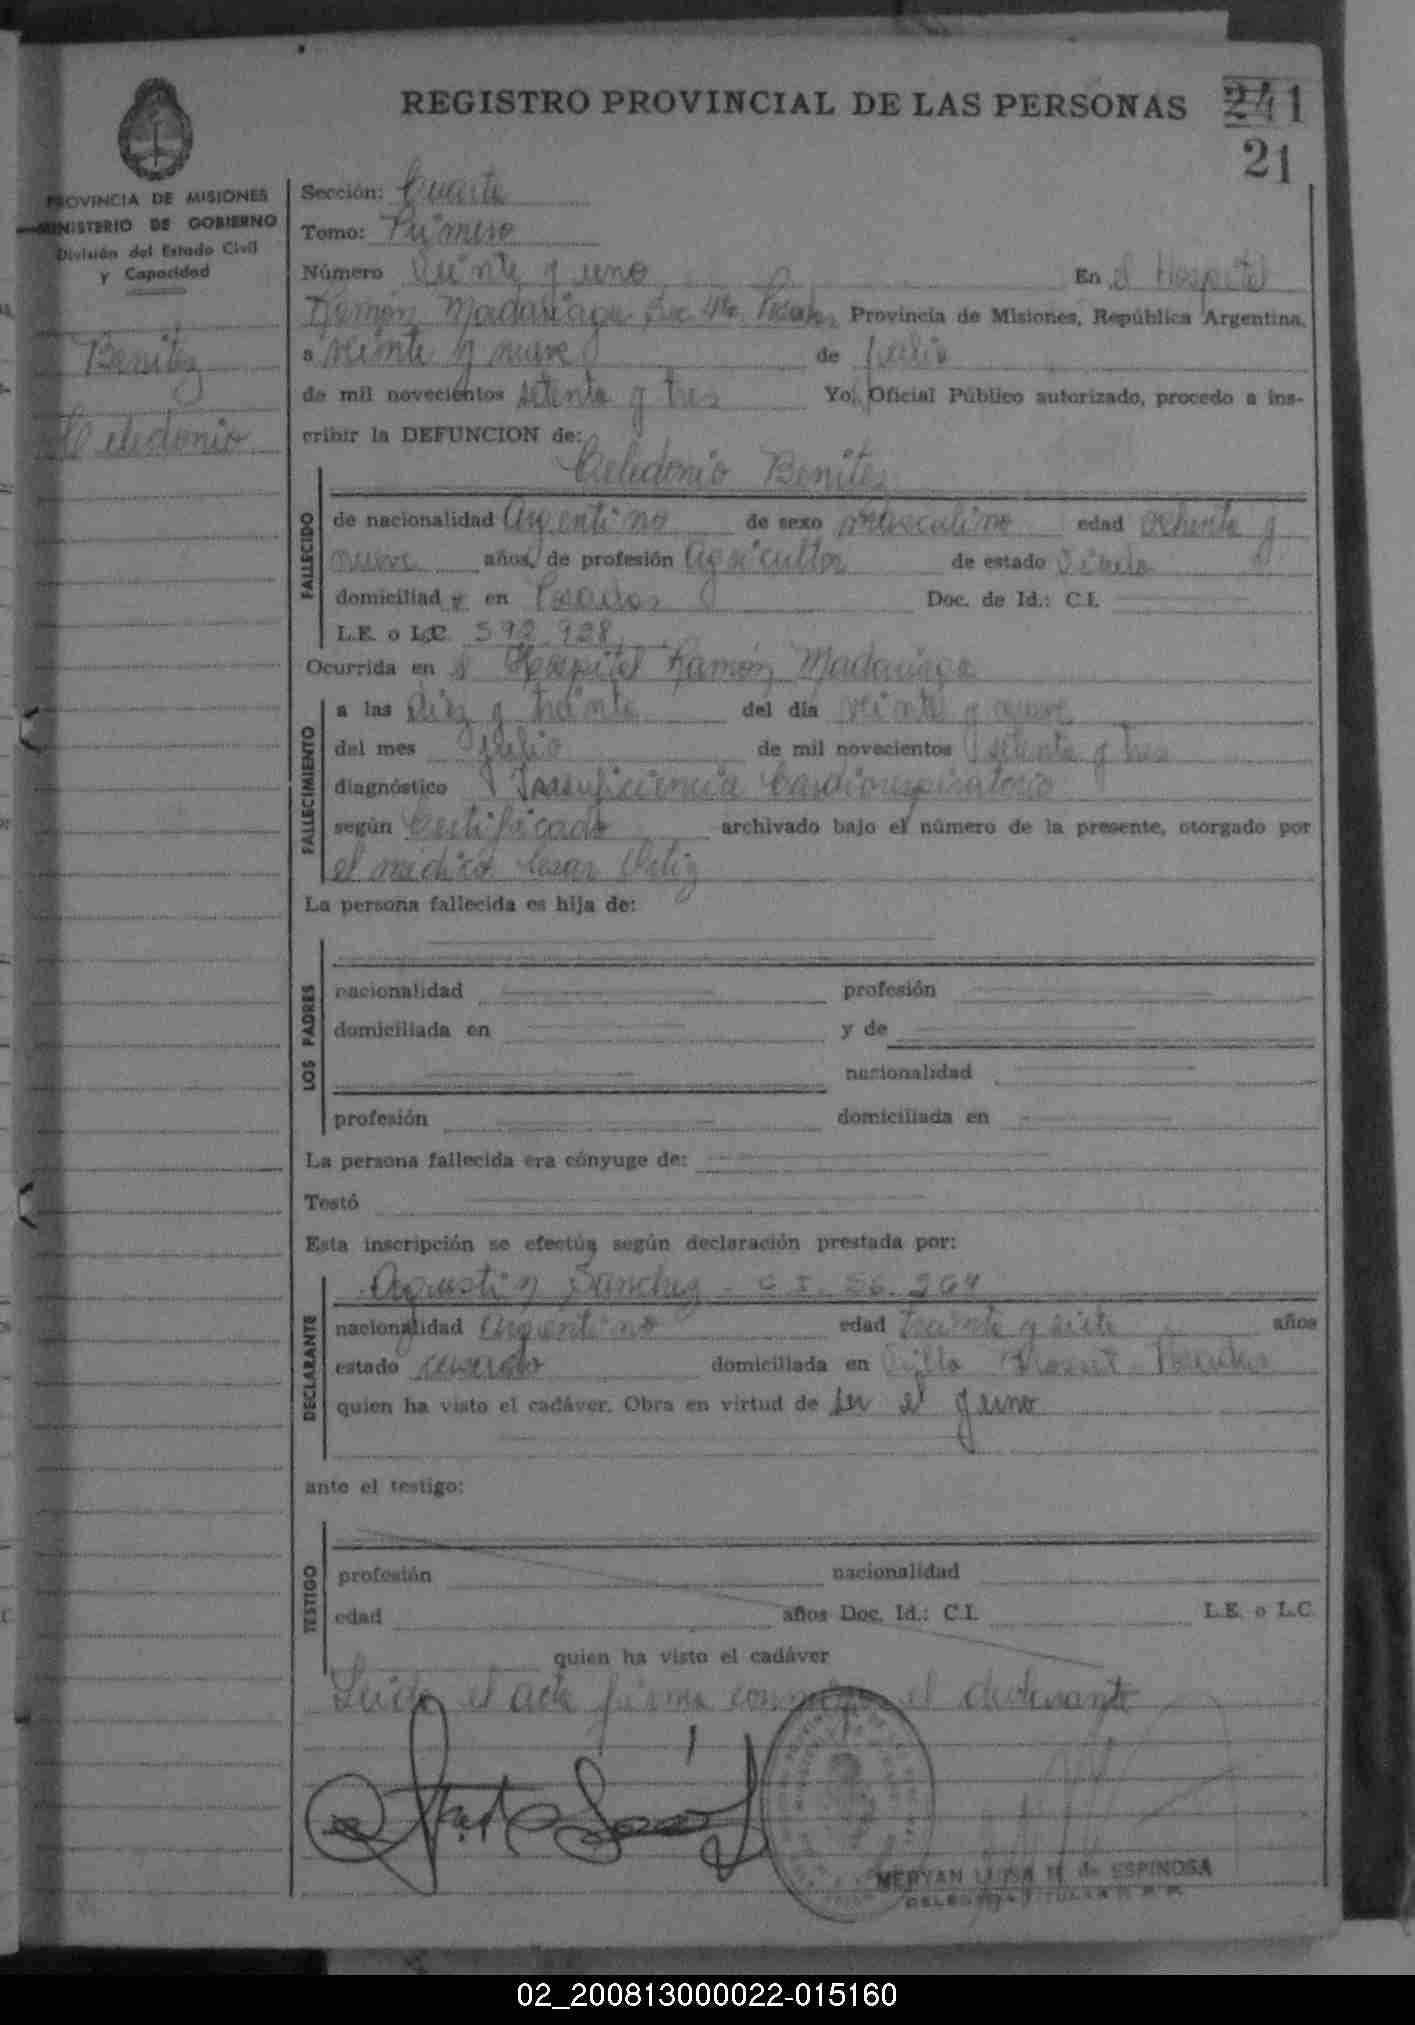 REGISTRO PROVINCIAL DE LAS PERSONAS 241
21
PROVINCIA DE MISIONES
MINISTERIO DE GOBIERNO
División del Estado Civil
y Capacidad
Benitez
Celedonio
Sección: Cuarta
Tomo: Primero
Número Veinte y uno En el Hospital
Ramón Madariaga Sec 4ta Posadas Provincia de Misiones, República Argentina,
a veinte y nueve de julio
de mil novecientos setenta y tres Yo, Oficial Público autorizado, procedo a ins-
cribir la DEFUNCION de:
Celedonio Benitez
FALLECIDO
de nacionalidad Argentino de sexo masculino edad ochenta y
nueve años, de profesión Agricultor de estado viudo
domiciliado en Posadas Doc. de Id.: C.I.
L.E. o L.C. 592.928
Ocurrida en el Hospital Ramón Madariaga
FALLECIMIENTO
a las diez y treinta del día veinte y nueve
del mes julio de mil novecientos setenta y tres
diagnóstico Insuficiencia Cardiorespiratorio
según Certificado archivado bajo el número de la presente, otorgado por
el medico Cesar Ortiz
La persona fallecida es hija de:
LOS PADRES
nacionalidad profesión
domiciliada en y de
nacionalidad
profesión domiciliada en
La persona fallecida era cónyuge de:
Testó
Esta inscripción se efectúa según declaración prestada por:
Agustin Sanchez - C I. 56.264
DECLARANTE
nacionalidad Argentino edad treinta y siete años
estado domiciliada en Villa Posadas
quien ha visto el cadáver. Obra en virtud de ser el yerno
ante el testigo:
TESTIGO
profesión nacionalidad
edad años Doc. Id.: C.I. L.E. o L.C.
quien ha visto el cadáver
Leida el acta firma conmigo el declarante
MERYAN LUISA M. de ESPINOSA
02_200813000022-015160